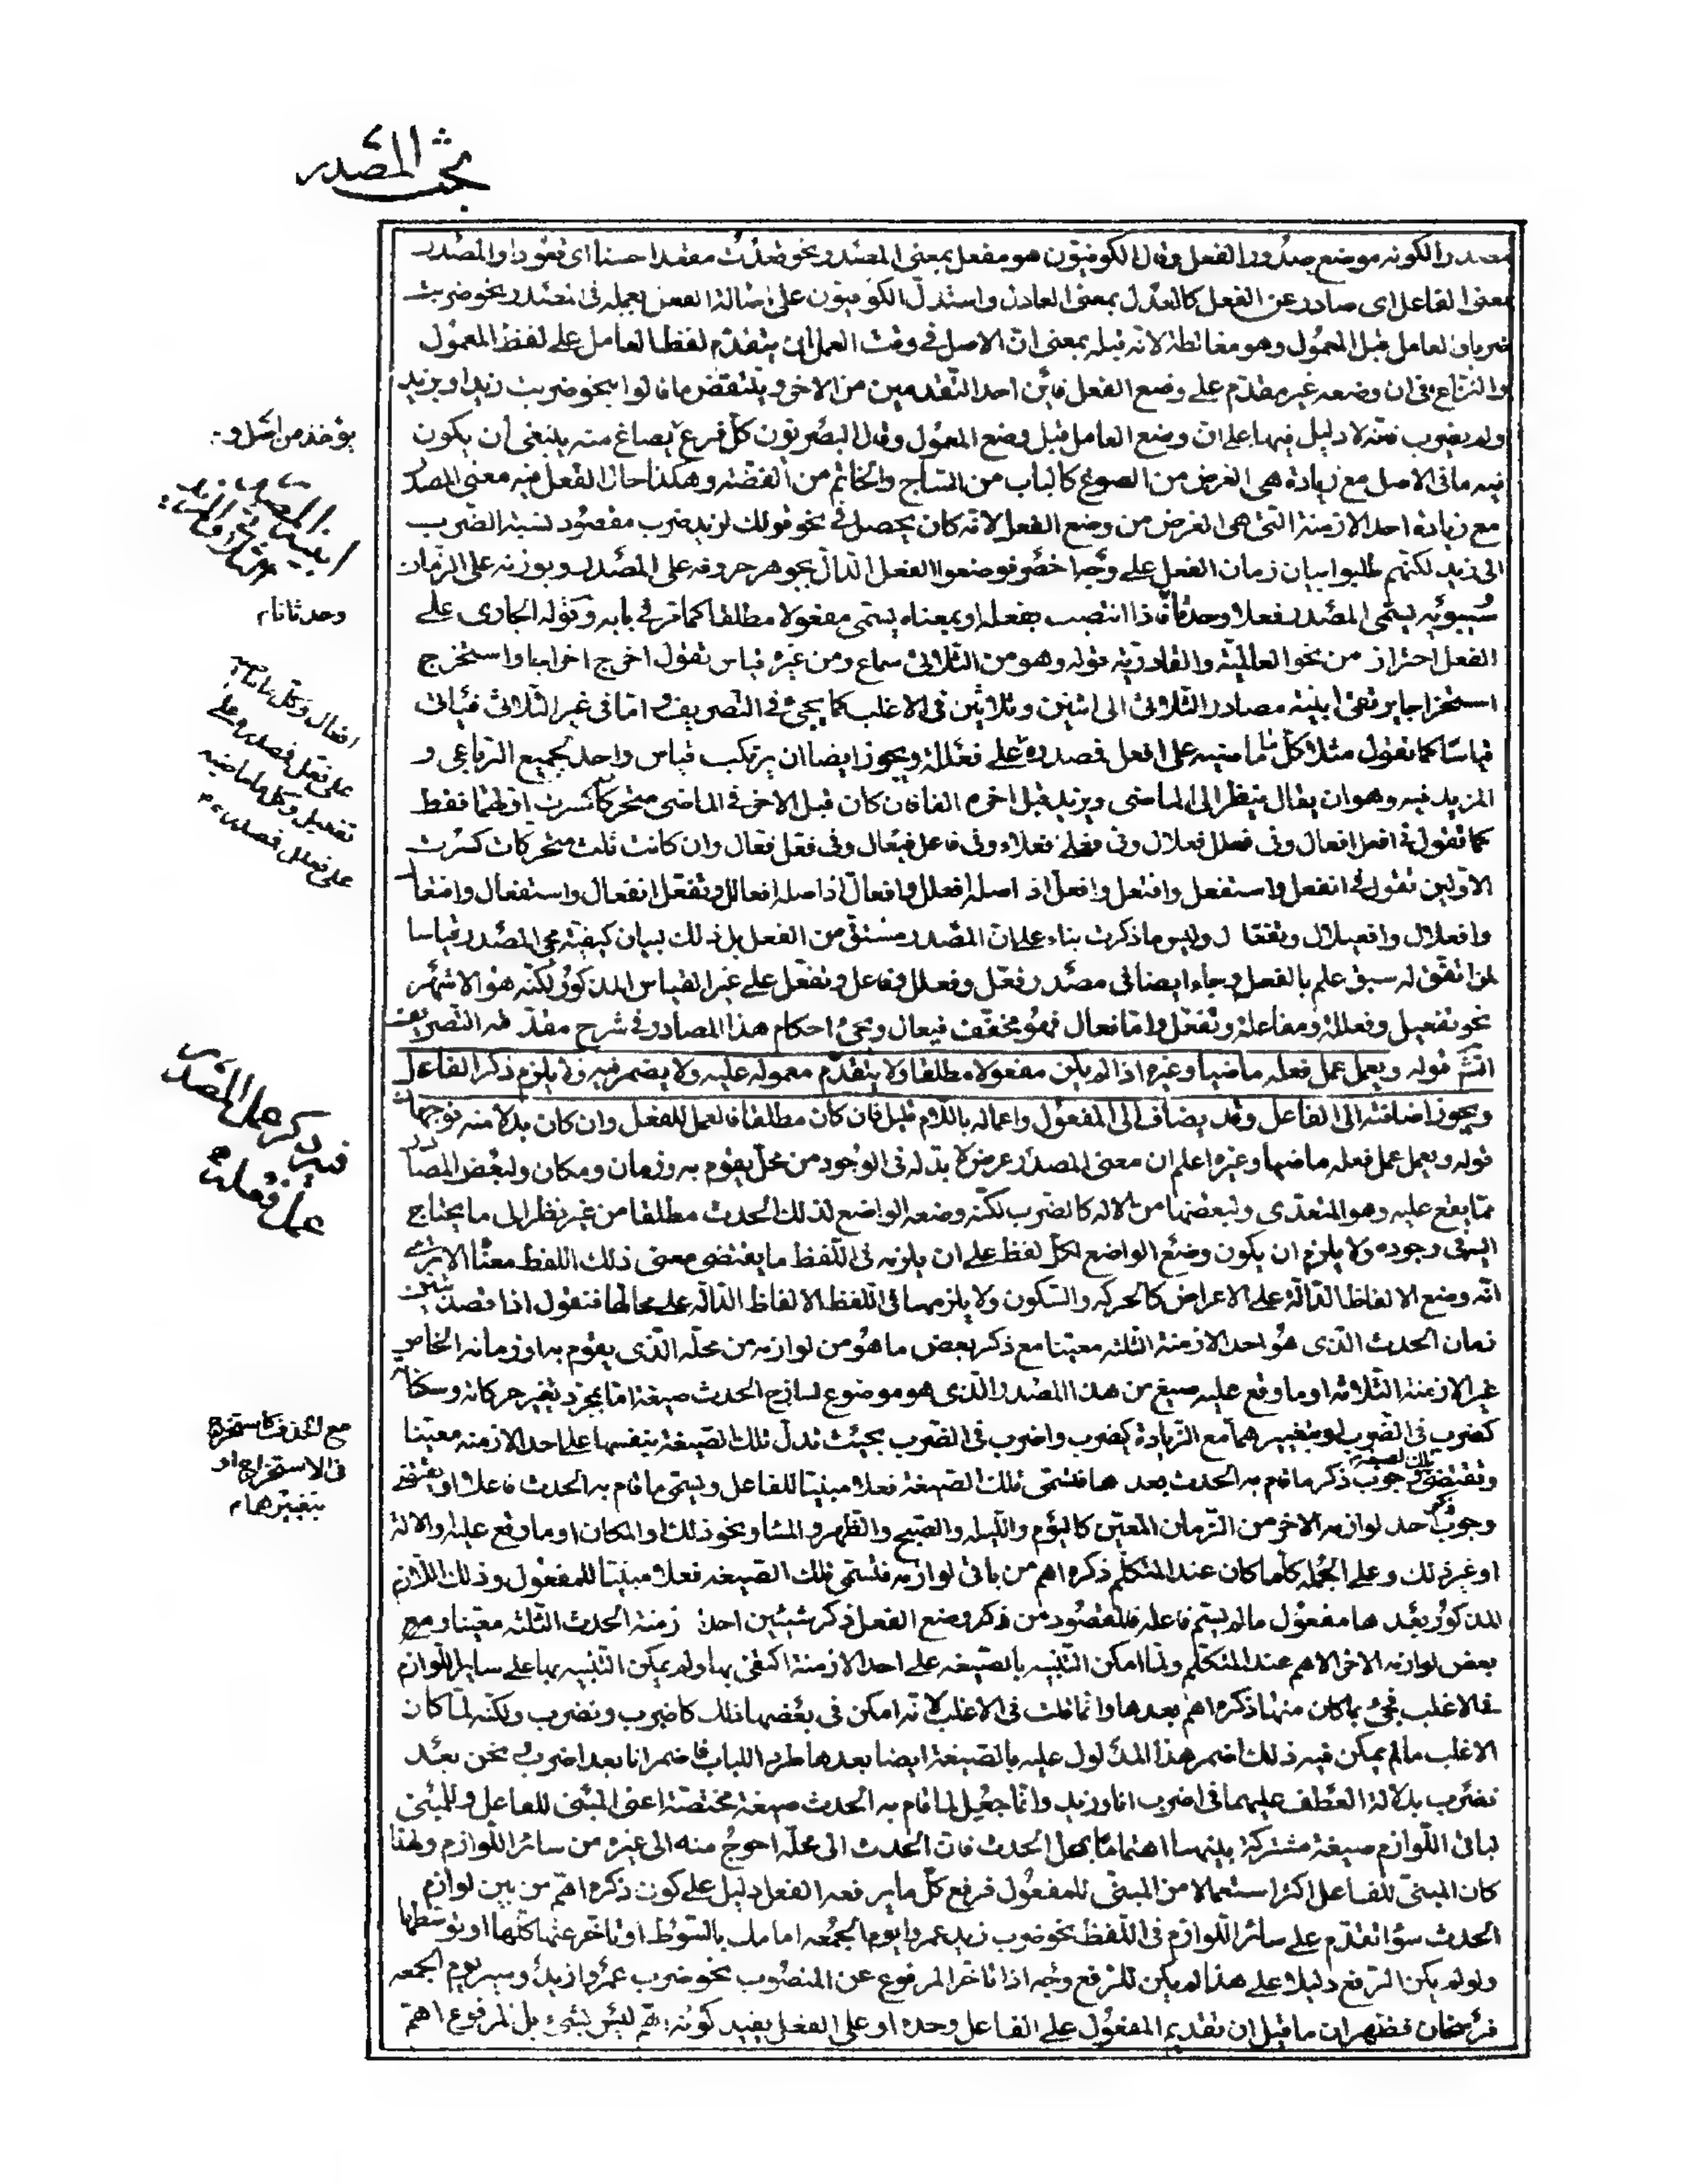 بحث المصدر
مصدرا لكونه موضع صدور الفعل وقال الكوفيون هو مفعل بمعنى المصدر نحو قعدت مقعدا حسنا اى قعودا والمصدر
بمعنى الفاعل اى صادر عن الفعل كالعدل بمعنى العادل واستدل الكوفيون على اصالة الفعل بعمله فى المصدر نحو ضربت
ضربا والعامل قبل المعمول وهو مغالطة لانه قبله بمعنى ان الاصل فى وقت العمل ان يتقدم لفظ العامل على لفظ المعمول
والنزاع فى ان وضعه غير مقدم على وضع الفعل فاين احد التقدمين من الاخر وينتقض ما قالوا بنحو ضربت زيدا وبزيد
ولم يضرب فانه لا دليل فيها على ان وضع العامل قبل وضع المعمول وقال البصريون كل فرع يصاغ منه ينبغى ان يكون
فيه ما فى الاصل مع زيادة هى الغرض من الصوغ كالباب من الساج والخاتم من الفضة وهكذا حال الفعل فيه معنى المصدر
مع زيادة احد الازمنة التى هى الغرض من وضع الفعل لانه كان يحصل فى نحو قولك لزيد ضرب مقصود نسبة الضرب
الى زيد لكنهم طلبوا بيان زمان الفعل على وجه اخصر فوضعوا الفعل الدال بجوهر حروفه على المصدر وبوزنه على الزمان
سيبويه يسمى المصدر فعلا وحدثا فاذا انتصب بفعله او بمعناه يسمى مفعولا مطلقا كما مر فى بابه وقوله الجارى على
الفعل احتراز من نحو العالمية والقادرية قوله وهو من الثلاثى سماع ومن غيره قياس تقول اخرج اخراجا واستخرج
استخراجا يرتقى ابنية مصادر الثلاثى الى اثنين وثلاثين فى الاغلب كما يجئ فى التصريف واما فى غير الثلاثى فياتى
قياسا كما تقول مثلا كل ما ماضيه على افعل فمصدره على فعللة ويجوز ايضا ان يرتكب قياس واحد لجميع الرباعى و
المزيد فيه وهو ان يقال ينظر الى الماضى ويزيد قبل اخره الفا فان كان قبل الاخر فى الماضى متحركات كسرت اولها فقط
كما تقول فى افعل افعال وفى فعلل فعلال وفى فعلى فعلاء وفى فاعل فيعال وفى فعل فعال وان كانت ثلث متحركات كسرت
الاولين تقول فى انفعل واستفعل وافتعل وافعل اذ اصله افعلل وافعال اذ اصله افعالل وتفعل انفعال واستفعال وافتعال
وافعلال وافعيلال وتفعال وليس ما ذكرت بناء على ان المصدر مشتق من الفعل بل ذلك لبيان كيفية مجئ المصدر قياسا
لمن اتفق له سبق علم بالفعل وجاء ايضا فى مصدر فعل وفعلل وفاعل وتفعل على غير القياس المذكور لكنه هو الاشهر
نحو تفعيل وفعللة ومفاعلة وتفعل واما فعال فهو مخفف فيعال ويجئ احكام هذا المصادر فى شرح مقدمة التصريف
انشم قوله ويعمل عمل فعله ماضيا وغيره اذا لم يكن مفعولا مطلقا ولا يتقدم معموله عليه ولا يضمر فيه ولا يلزم ذكر الفاعل
ويجوز اضافته الى الفاعل وقد يضاف الى المفعول واعماله باللام قليل فان كان مطلقا فالعمل للفعل وان كان بدلا منه فوجهان
قوله ويعمل عمل فعله ماضيا وغيره اعلم ان معنى المصدر عرض لا بد له فى الوجود من محل يقوم به وزمان ومكان ولبعض المصادر
مما يقع عليه وهو المتعدى ولبعضها من الاله كالضرب لكنه وضعه الواضع لذلك الحدث مطلقا من غير نظر الى ما يحتاج
اليه فى وجوده ولا يلزم ان يكون وضع الواضع لكل لفظ على ان يلزمه فى اللفظ ما يقتضى معنى ذلك اللفظ معناً الا ترى
انه وضع الالفاظ الدالة على الاعراض كالحركه والسكون ولا يلزمها فى اللفظ الالفاظ الدالة على محالها فنقول اذا قصدت تبيين
زمان الحدث الذى هو احد الازمنة الثلثه معينا مع ذكر بعض ما هو من لوازمه من محله الذى يقوم به او زمانه الخاص
غير الازمنة الثلاثه او ما وقع عليه صيغ من هذا المصدر الذى هو موضوع لساذج الحدث صيغة اما بمجرد تغيير حركاته وسكناته
كضرب فى الضرب او بتغييرهما مع الزيادة كيضرب واضرب فى الضرب بحيث تدل تلك الصيغة بنفسها على احد الازمنه معينا
وتقتضى تلك الصيغة وجوب ذكر ما قام به الحدث بعدها فتسمى تلك الصيغة فعلا مبنيا للفاعل ويسمى ما قام به الحدث فاعلا او يقتضى
وجوب ذكر احد لوازمه الاخر من الزمان المعين كاليوم والليله والصبح والظهر والمشا ونحو ذلك او المكان او ما وقع عليه والالة
او غير ذلك وعلى الجمله كل ما كان عند المتكلم ذكره اهم من باقى لوازمه فتسمى تلك الصيغه فعلا مبنيا للمفعول وذلك اللازم
المذكور بعدها مفعول ما لم يسم فاعله فالمقصود من ذكر وضع الفعل ذكر شيئين احد ازمنة الحدث الثلثه معينا ومع
بعض لوازمه الاخر الاهم عند المتكلم ولما امكن التنبيه بالصيغه على احد الازمنة اكتفى بها ولم يمكن التنبيه بها على ساير اللوازم
فالاغلب فجئ بما كان منها ذكره اهم بعدها وانما قلت فى الاغلب لانه امكن فى بعضها ذلك كاضرب ونضرب ولكنه لما كان
الاغلب ما لم يمكن فيه ذلك اضمر هذا المدلول عليه بالصيغة ايضا بعدها طردا للباب فاضمر انا بعد اضرب ونحن بعد
نضرب بدلالة العطف عليهما فى اضرب انا وزيد وانما جعل لما قام به الحدث صيغة مختصة اعنى المبنى للفاعل وللمبنى
لباقى اللوازم صيغة مشتركة بينها اهتماما بمحل الحدث فان الحدث الى محله احوج منه الى غيره من سائر اللوازم ولهذا
كان المبنى للفاعل اكثر استعمالا من المبنى للمفعول فرفع كل ما يرفعه الفعل دليل على كون ذكره اهم من بين لوازم
الحدث سواء تقدم على سائر اللوازم فى اللفظ نحو ضرب زيد عمرا يوم الجمعه امامك بالسوط او تاخر عنها كلها او توسطها
ولو لم يكن الرفع دليلا على هذا لم يكن للرفع وجه اذا تاخر المرفوع عن المنصوب نحو ضرب عمرا زيد وسير يوم الجمعه
فرسخان فظهر ان ما قيل ان تقديم المفعول على الفاعل وحده او على الفعل يفيد كونه اهم ليس بشئ بل المرفوع اهم
يؤخذ من اصل و
وحدثانا
افعال وكل ما ماضيه
على فعل فمصدره على
تفعيل وكل ما ماضيه
على فعلل فمصدره
فى ذكر عمل المصدر
عمل فعله
مع الحذف كاستخرج
فى الاستخراج او
بتغييرهما